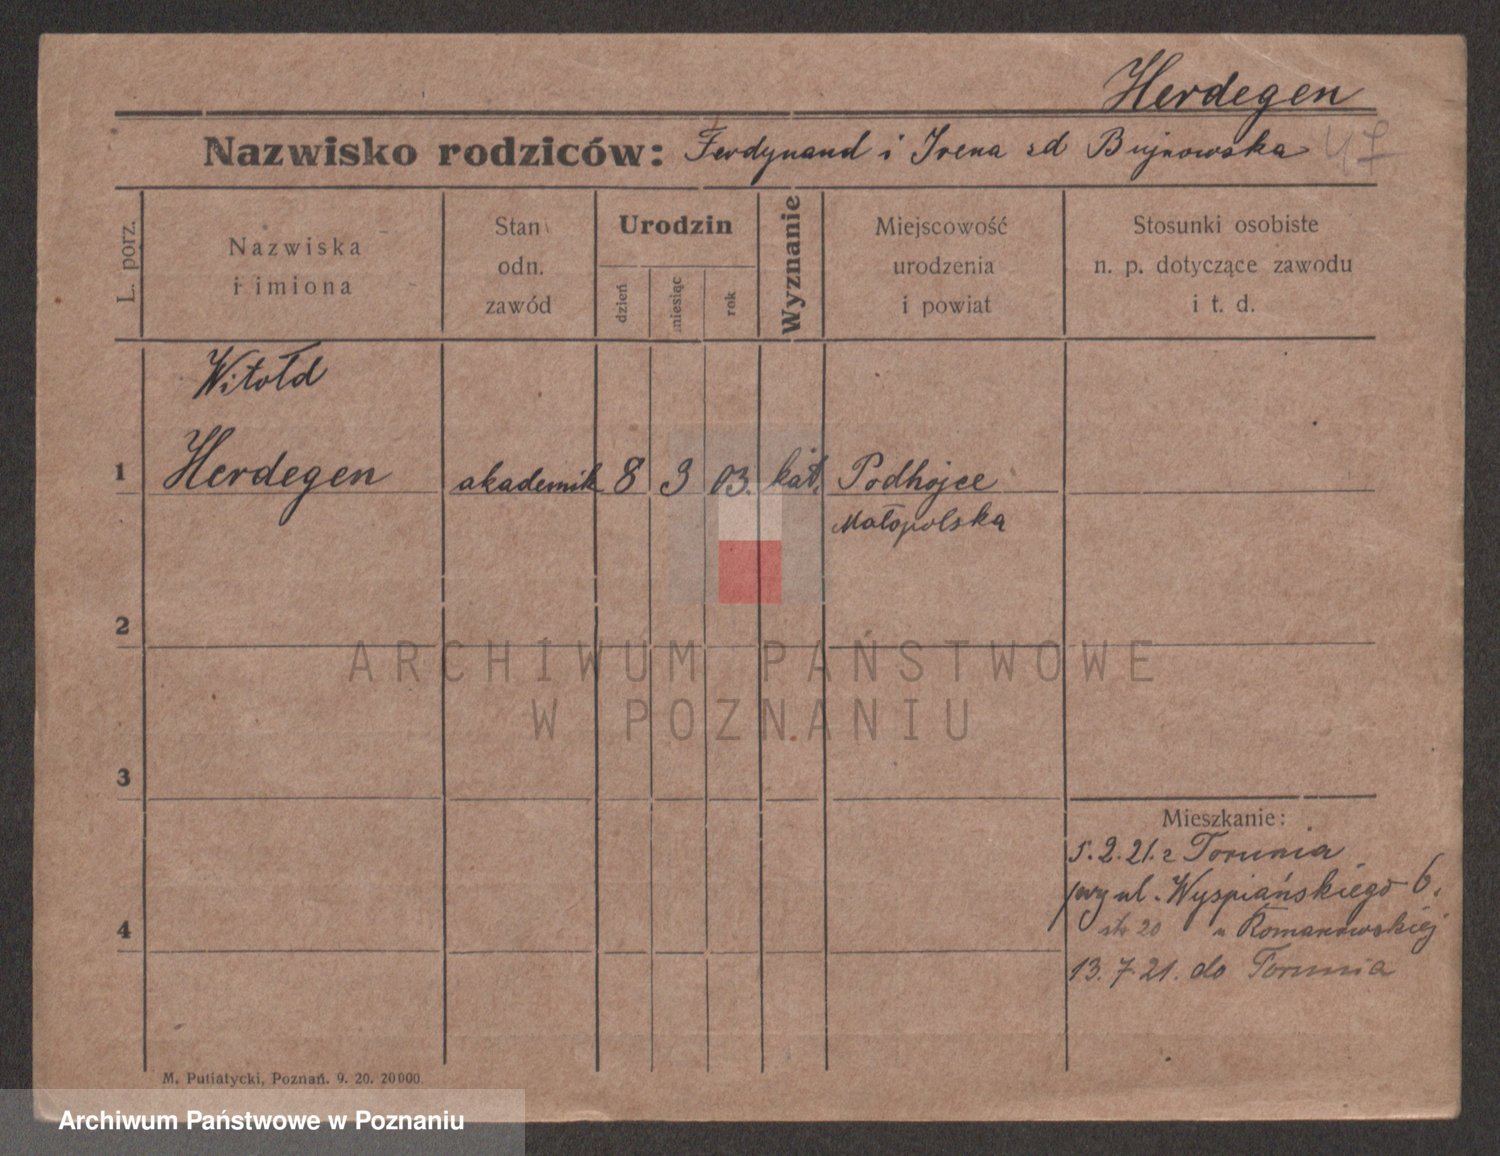 Herdegen
Nazwisko rodziców: Ferdynand i Irena zd Bujnowska
L. porz.
Nazwiska
i imiona
Stan
odn.
zawód
Urodzin
dzień
miesiąc
rok
Wyznanie
Miejscowość
urodzenia
i powiat
Stosunki osobiste
n. p. dotyczące zawodu
i t. d.
Witołd
1 Herdegen akademik 8 3 03. kat. Podhojce
Małopolska
2
ARCHIWUM PAŃSTWOWE
W POZNANIU
3
Mieszkanie:
5.2.21. z Torunia
przy ul. Wyspiańskiego 6.
4 str 20 u Romanowskiej
13.7.21. do Torunia
M. Putiatycki, Poznań. 9. 20. 20000
Archiwum Państwowe w Poznaniu